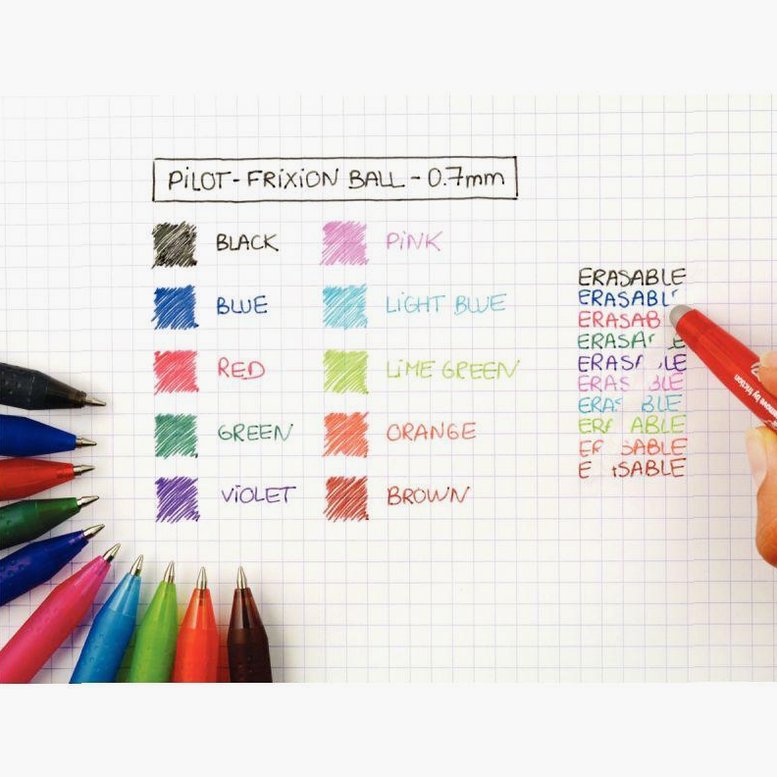 PILOT-FRIXION BALL - 0.7mm
BLACK
BLUE
RED
GREEN
VIOLET
PINK
LIGHT BLUE
LIME GREEN
ORANGE
BROWN
ERASABLE
ERASABL
ERASAB
ERASA E
ERASABLE
ERAS BLE
ERAS BLE
ERA ABLE
ER SABLE
E SABLE
move by friction